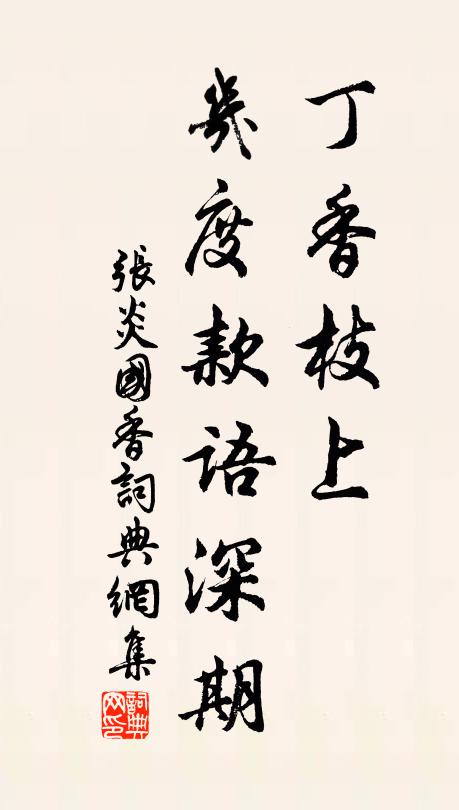 丁香枝上
幾度款語深期
張炎國香詞典網集
詞典网印